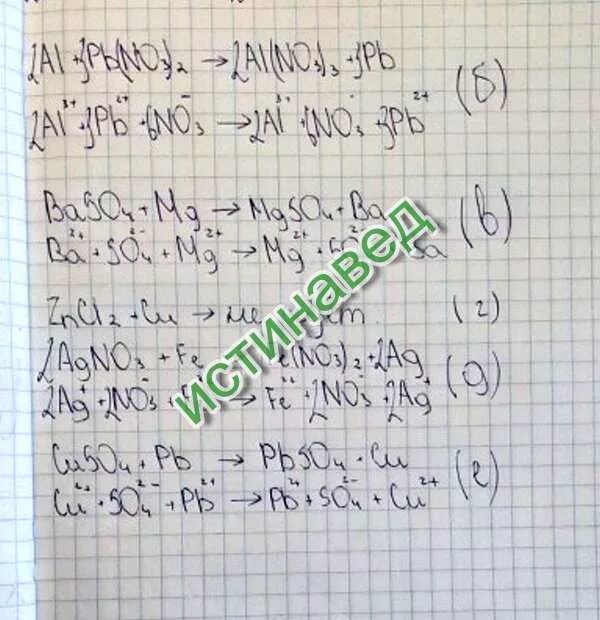 2Al + 3Pb(NO₃)₂ → 2Al(NO₃)₃ + 3Pb
2Al³⁺ + 3Pb²⁺ + 6NO₃⁻ → 2Al³⁺ + 6NO₃⁻ + 3Pb²⁺ (б)
BaSO₄ + Mg → MgSO₄ + Ba
Ba²⁺ + SO₄²⁻ + Mg²⁺ → Mg²⁺ + SO₄ Ba (в)
ZnCl₂ + Cu → не (г)
2AgNO₃ + Fe e(NO₃)₂ + 2Ag
2Ag⁺ + 2NO₃⁻ + → Fe⁺⁺ + 2NO₃⁻ + 2Ag⁺ (д)
CuSO₄ + Pb → PbSO₄ + Cu
Cu²⁺ + SO₄²⁻ + Pb²⁺ → Pb²⁺ + SO₄²⁻ + Cu²⁺ (е)
истинавед